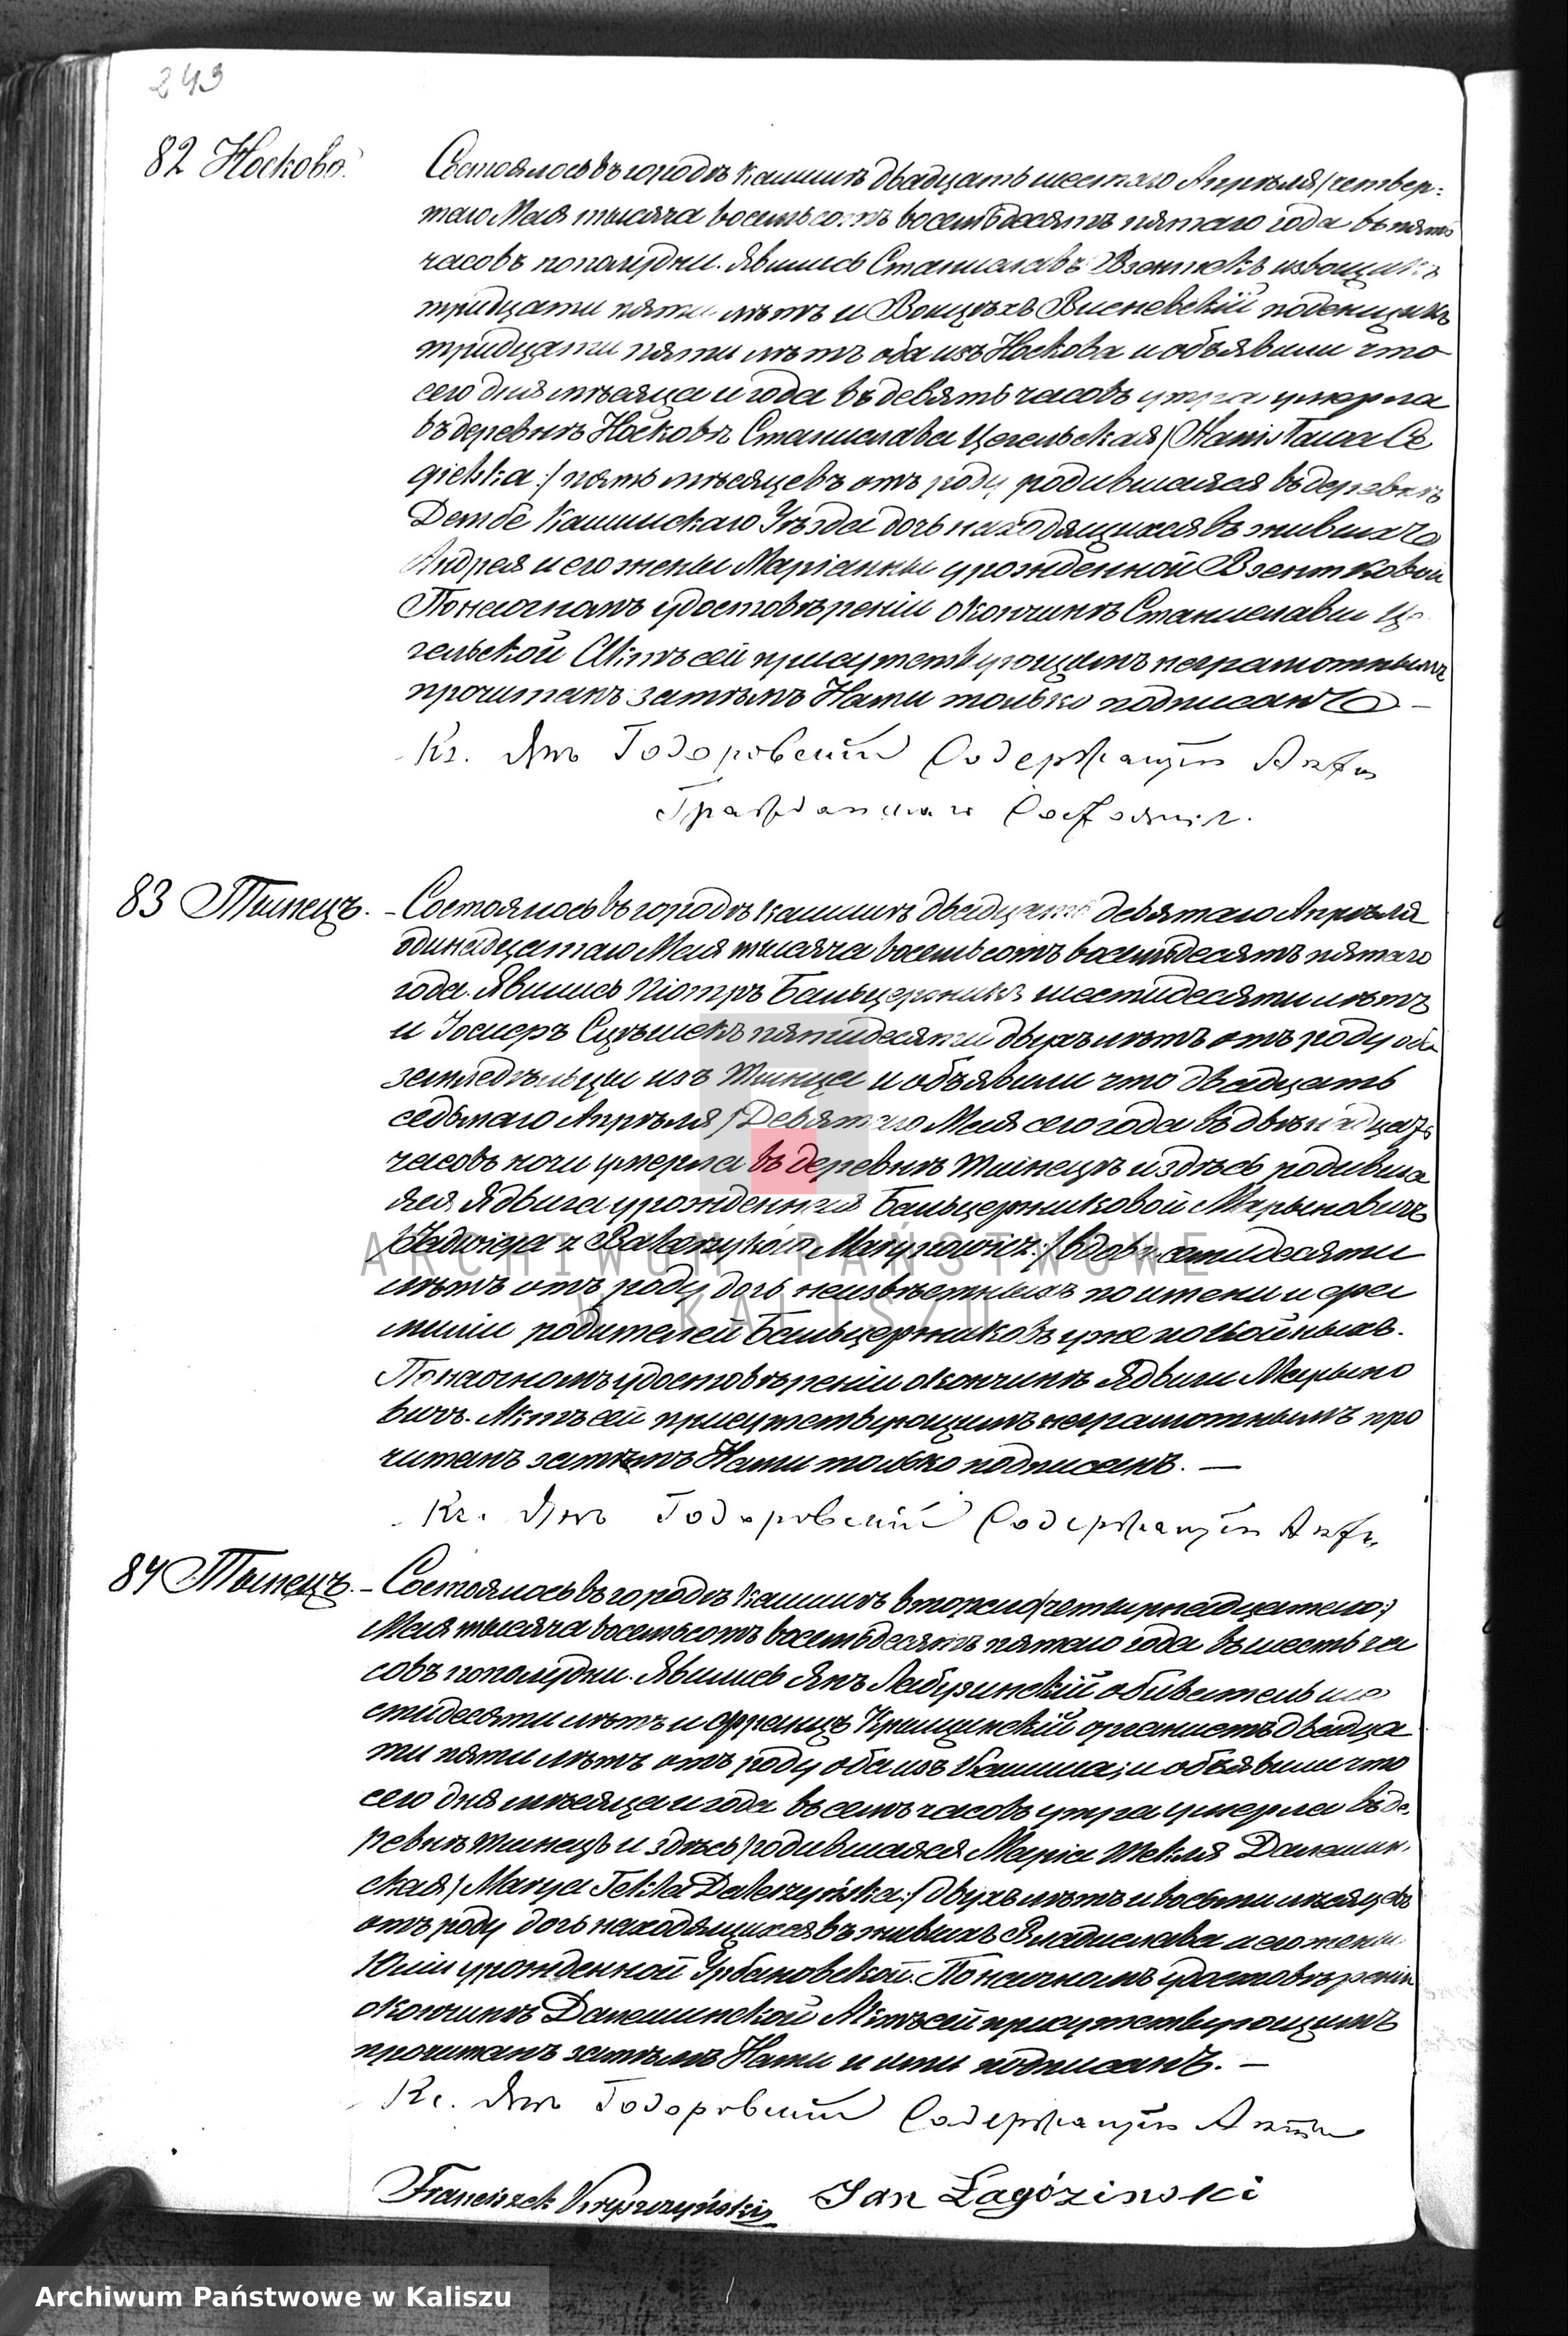 243
82 Носково.
Состоялось въ городѣ Калишѣ двадцать шестаго Апрѣля/четвер-
таго Мая тысяча восемьсотъ восемьдесятъ пятаго года въ пять
часовъ пополудни. Явились Станиславъ Взентекъ извощикъ
тридцати пяти лѣтъ и Войцѣхъ Висневскій поденщикъ
тридцати пяти лѣтъ оба изъ Носкова и объявили что
сего дня мѣсяца и года въ девять часовъ утра умерла
въ деревнѣ Носковѣ Станислава Цегельская/Stanisława Ce
gielska:/ пять мѣсяцевъ отъ роду родившаяся въ деревнѣ
Дембе Калишскаго Уѣзда дочь находящихся въ живыхъ
Андрея и его жены Маріанны урожденной Взентковой
По настномъ удостовѣреніи о кончинѣ Станиславы Це
гельской Актъ сей присутствующимъ неграмотнымъ
прочитанъ затѣмъ Нами только подписанъ —
Кс. Янъ Годоровскій Содержащій Акты
Гражданскаго Состоянія.
83 Тынецъ. – Состоялось въ городѣ Калишѣ двадцать девятаго Апрѣля
одинадцатаго Мая тысяча восемьсотъ восемьдесятъ пятаго
года. Явились Піотръ Бальцержикъ шестидесяти лѣтъ
и Іосифъ пятидесяти двухъ лѣтъ отъ роду оба
земледѣльцы изъ Тынца и объявили что двадцать
седьмаго Апрѣля/Девятаго Мая сего года въ двѣнадцать
часовъ ночи умерла въ деревнѣ Тынецъ и здѣсь родивша
яся Ядвига урожденная Бальцержиковой Марыновичъ
/Jadwiga z Balcerzyków Marynowicz:/ вдова семидесяти
лѣтъ отъ роду дочь неизвѣстныхъ по имени и фа
миліи родителей Бальцержиковъ уже покойныхъ.
По настномъ удостовѣреніи о кончинѣ Ядвиги Марыно
вичъ. Актъ сей присутствующимъ неграмотнымъ про
читанъ затѣмъ Нами только подписанъ. —
Кс. Янъ Годоровскій Содержащій Акты
84 Тынецъ. – Состоялось въ городѣ Калишѣ втораго/четырнадцатаго:/
Мая тысяча восемьсотъ восемьдесятъ пятаго года въ шесть ча
совъ пополудни. Явились Янъ обыватель ше
стидесяти лѣтъ и Францъ Крыщинскій органистъ двадца
ти пяти лѣтъ отъ роду оба изъ Калиша; и объявили что
сего дня мѣсяца и года въ семъ часовъ утра умерла въ де
ревнѣ Тынецъ и здѣсь родившаяся Марія Текля
ская/Marya Tekla :/ двухъ лѣтъ и восьми мѣсяцевъ
отъ роду дочь находящихся въ живыхъ Владислава и его жены
Юліи урожденной Урбановской. По настномъ удостовѣреніи
о кончинѣ Актъ сей присутствующимъ
прочитанъ затѣмъ Нами и ими подписанъ. —
Кс. Янъ Годоровскій Содержащій Акты
Franciszek Kryszczyński Jan Łagóziński
ARCHIWUM PAŃSTWOWE
W KALISZU
Archiwum Państwowe w Kaliszu